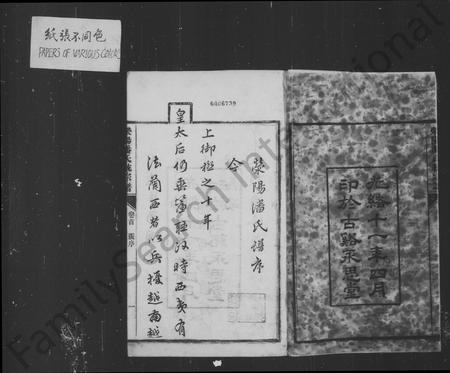 紙張不同色
PAPERS OF VARIOUS COLORS
6406739
光緒十一年四月
印於古路永思堂
滎陽潘氏譜序
今
上御極之十年
皇
太后仍垂簾聽政時西夷有
法蘭西者以兵擾越南越
卷首
張序
FamilySearch International